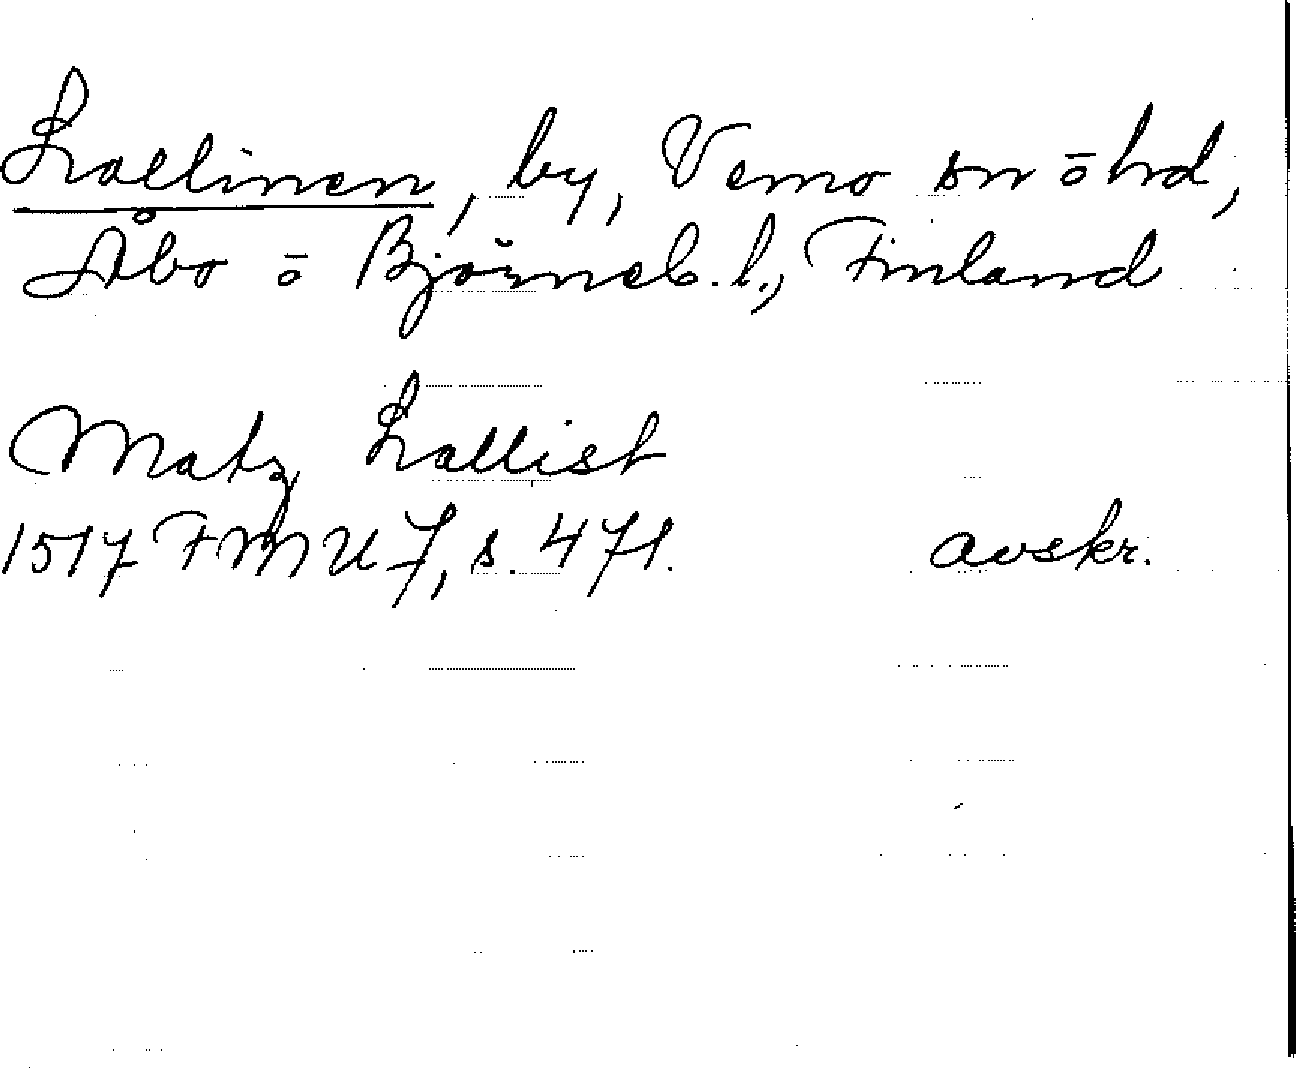 Lallinen, by, Vemo sn ō hd,
Åbo ō Björneb. l., Finland
Matz Lallist
1517 FMU 7, s. 471. avskr.